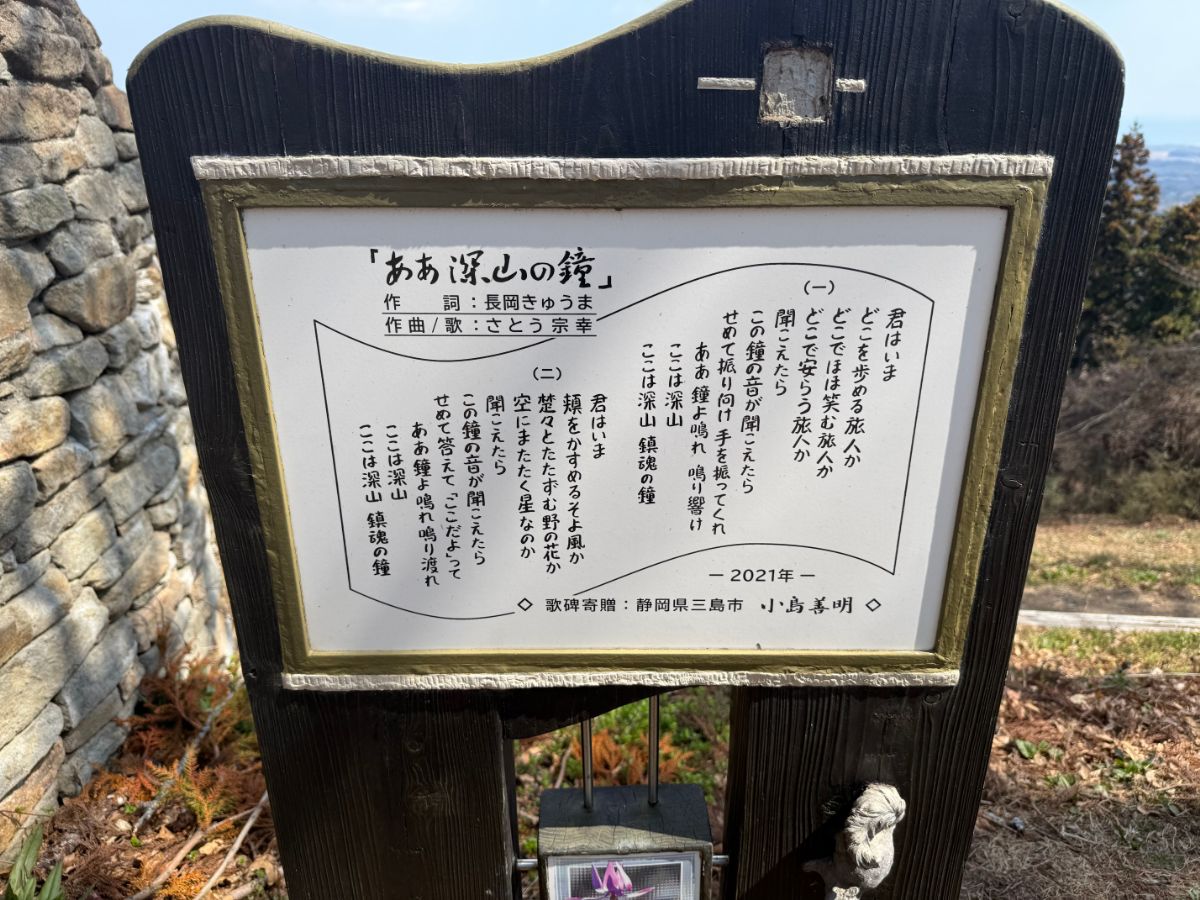 「ああ深山の鐘」
作　　詞：長岡きゅうま
作曲/歌：さとう宗幸
（一）
君はいま
どこを歩める旅人か
どこでほほ笑む旅人か
どこで安らう旅人か
聞こえたら
この鐘の音が聞こえたら
せめて振り向け 手を振ってくれ
ああ 鐘よ鳴れ 鳴り響け
ここは深山
ここは深山 鎮魂の鐘
（二）
君はいま
頬をかすめるそよ風か
楚々とたたずむ野の花か
空にまたたく星なのか
聞こえたら
この鐘の音が聞こえたら
せめて答えて「ここだよ」って
ああ鐘よ鳴れ鳴り渡れ
ここは深山
ここは深山 鎮魂の鐘
― 2021年 ―
◇ 歌碑寄贈：静岡県三島市 小島善明 ◇